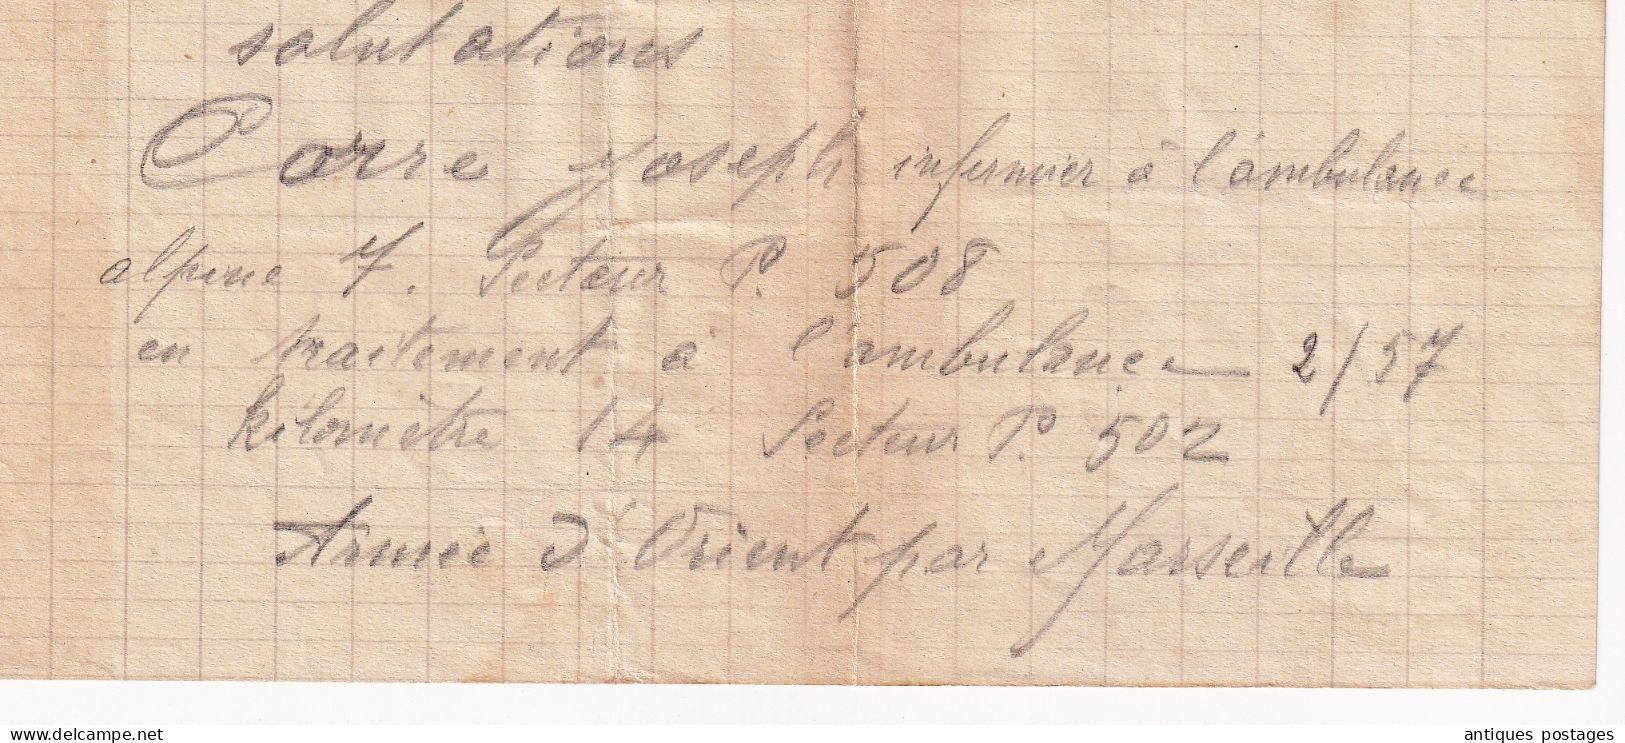 salutations
Corre Joseph infirmier à l'ambulance
alpine 7. Secteur P. 508
en traitement à l'ambulance 2/57
kilomètre 14 Secteur P. 502
Armée d'Orient par Marseille
www.delcampe.net
antiques postages